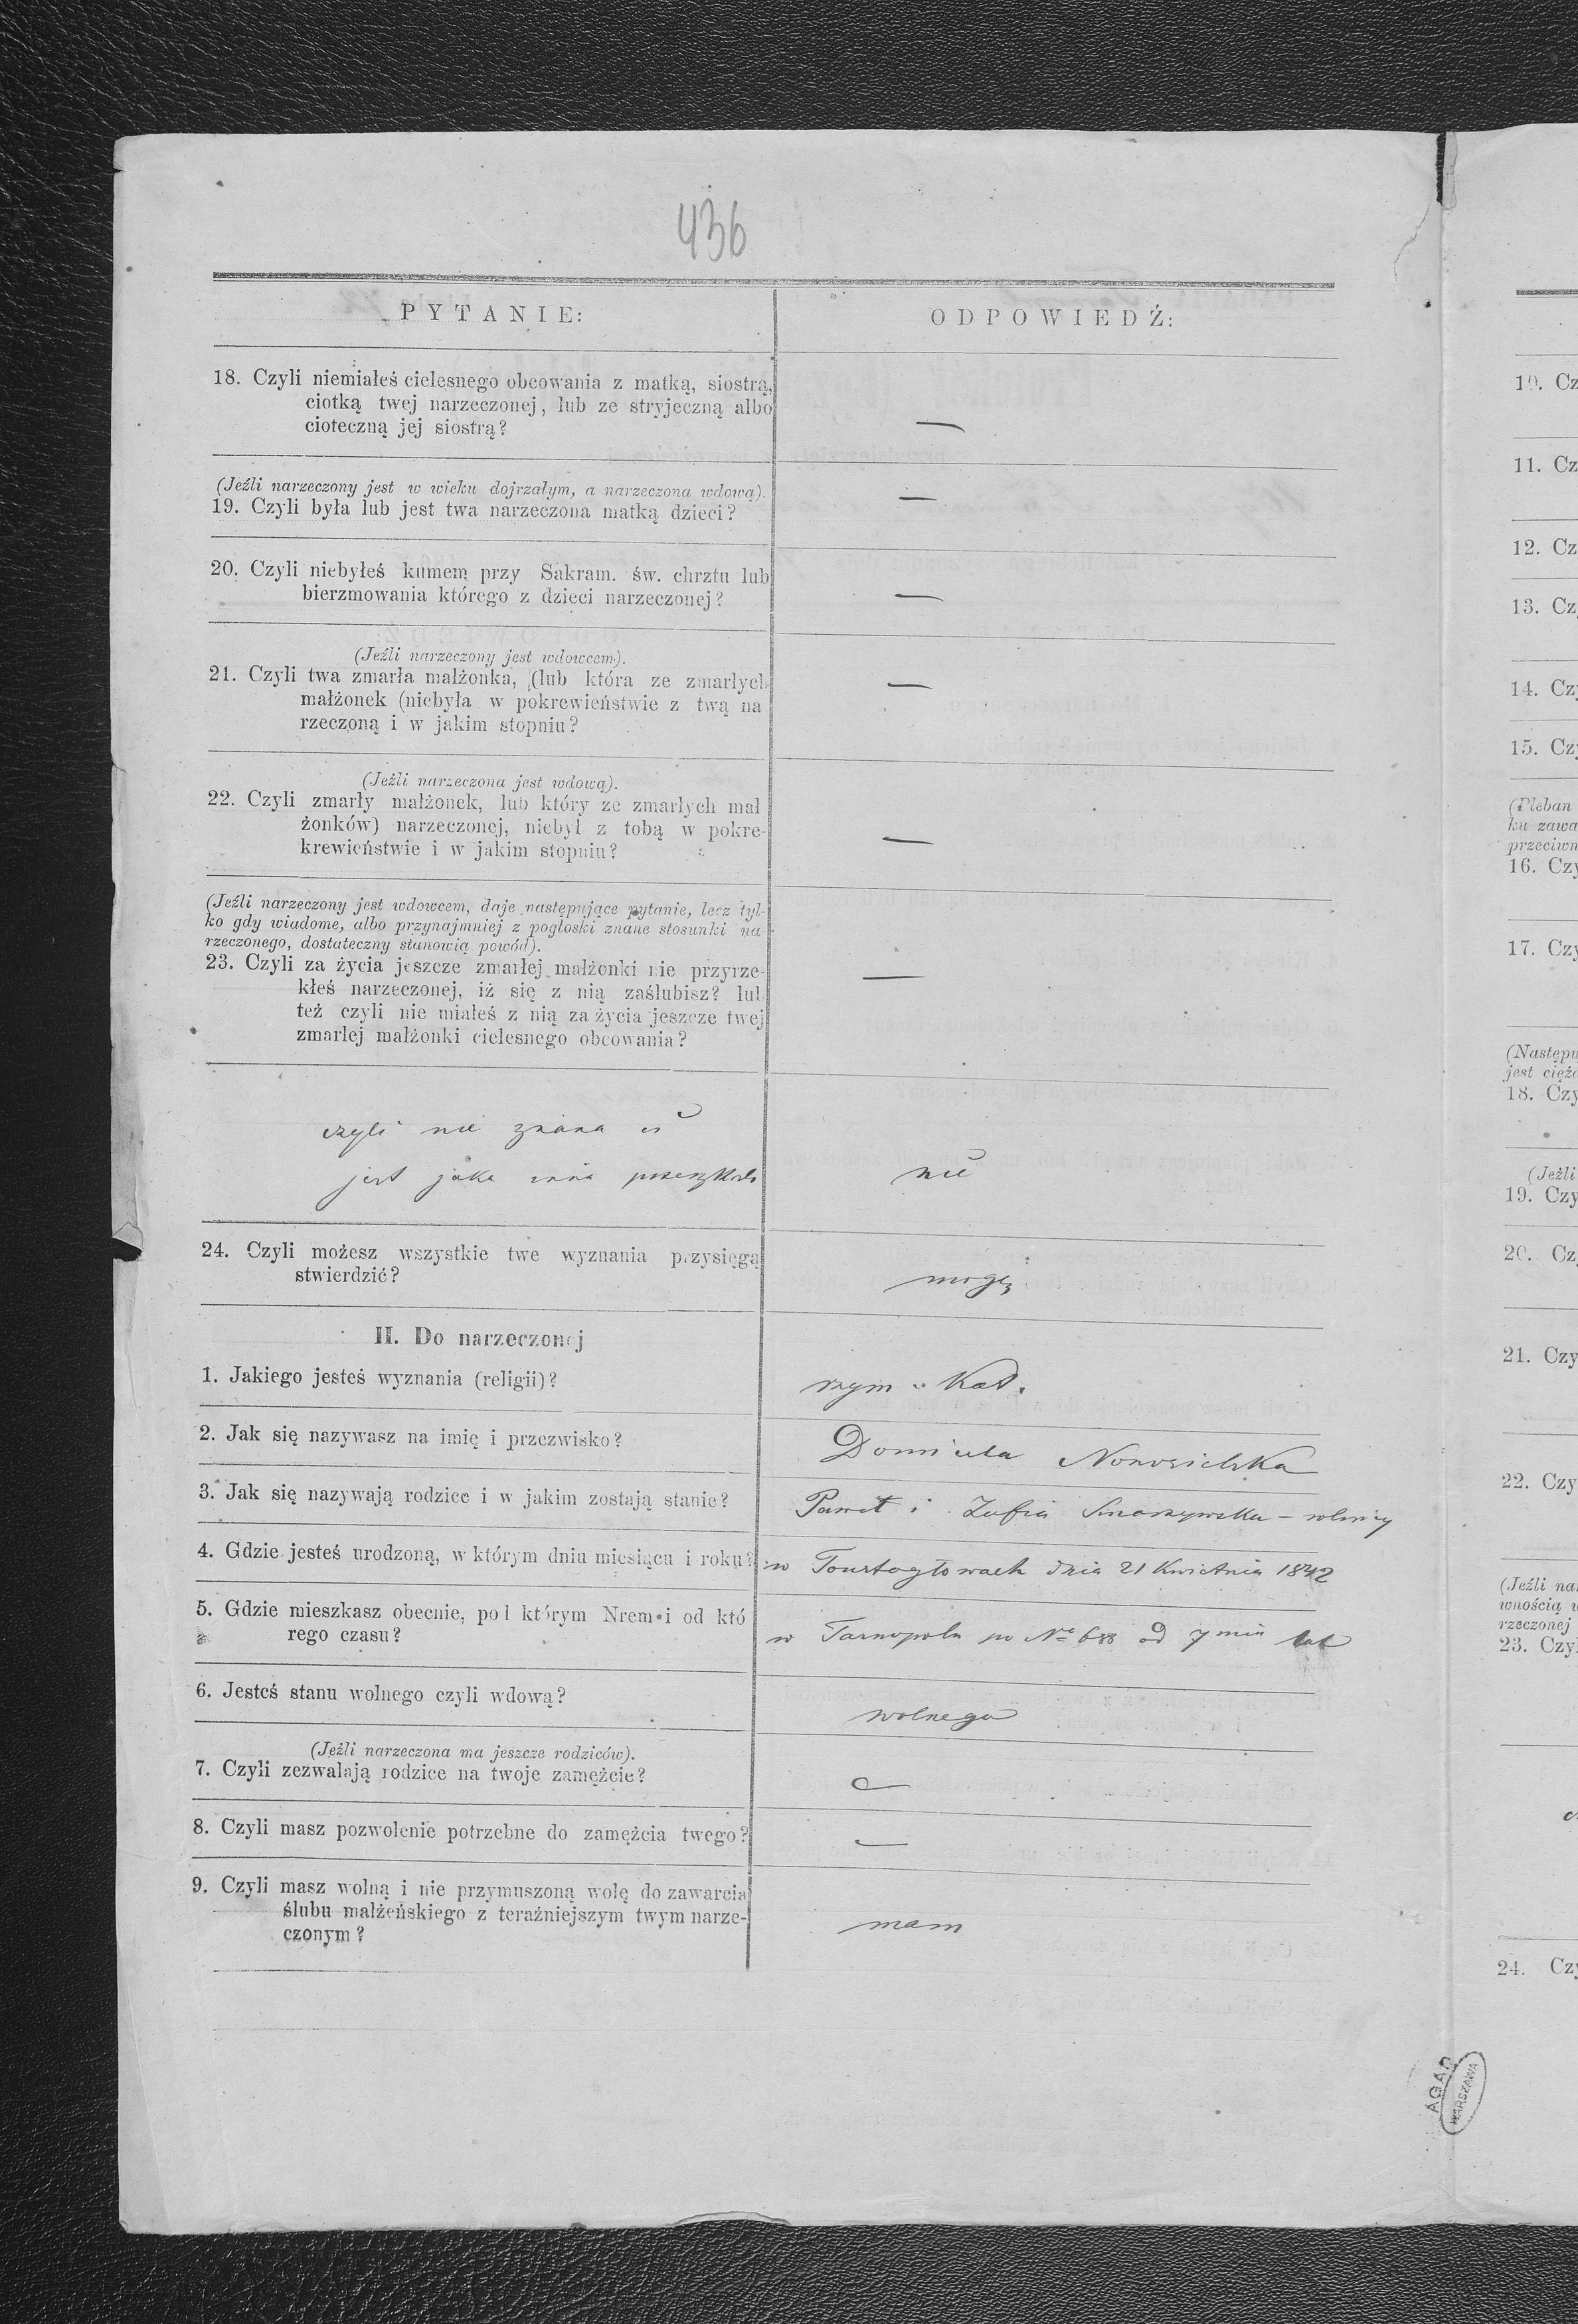 436
PYTANIE:
ODPOWIEDŹ:
18. Czyli niemiałeś cielesnego obcowania z matką, siostrą,
ciotką twej narzeczonej, lub ze stryjeczną albo
cioteczną jej siostrą?
—
(Jeźli narzeczony jest w wieku dojrzałym, a narzeczona wdową).
19. Czyli była lub jest twa narzeczona matką dzieci?
—
20. Czyli niebyłeś kumem przy Sakram. św. chrztu lub
bierzmowania którego z dzieci narzeczonej?
—
(Jeźli narzeczony jest wdowcem).
21. Czyli twa zmarła małżonka, (lub która ze zmarłych
małżonek (niebyła w pokrewieństwie z twą na
rzeczoną i w jakim stopniu?
—
(Jeźli narzeczona jest wdową).
22. Czyli zmarły małżonek, lub który ze zmarłych mał
żonków) narzeczonej, niebył z tobą w pokre-
krewieństwie i w jakim stopniu?
—
(Jeźli narzeczony jest wdowcem, daje następujące pytanie, lecz tyl-
ko gdy wiadome, albo przynajmniej z pogłoski znane stosunki na-
rzeczonego, dostateczny stanowią powód).
23. Czyli za życia jeszcze zmarłej małżonki nie przyrze-
kłeś narzeczonej, iż się z nią zaślubisz? lub
też czyli nie miałeś z nią za życia jeszcze twej
zmarłej małżonki cielesnego obcowania?
—
czyli nie znana ci
jest jaka inna przeszkoda
nie
24. Czyli możesz wszystkie twe wyznania przysięgą
stwierdzić?
mogę
II. Do narzeczonej
1. Jakiego jesteś wyznania (religii)?
rzym. Kat.
2. Jak się nazywasz na imię i przezwisko?
Domicela Nowosielska
3. Jak się nazywają rodzice i w jakim zostają stanie?
Paweł i Zofia
4. Gdzie jesteś urodzoną, w którym dniu miesiącu i roku?
w Toustogłowach dnia 21 Kwietnia 1842
5. Gdzie mieszkasz obecnie, pod którym Nrem i od któ
rego czasu?
w Tarnopolu po No 688 od 7miu lat
6. Jesteś stanu wolnego czyli wdową?
wolnego
(Jeźli narzeczona ma jeszcze rodziców).
7. Czyli zezwalają rodzice na twoje zamężcie?
—
8. Czyli masz pozwolenie potrzebne do zamężcia twego?
—
9. Czyli masz wolną i nie przymuszoną wolę do zawarcia
ślubu małżeńskiego z teraźniejszym twym narze-
czonym?
mam
10. Cz
11. Cz
12. Cz
13. Cz
14. Czy
15. Czy
(Pleban
ku zawa
przeciwn
16. Czy
17. Czy
(Następu
jest cięż
18. Czy
(Jeźli
19. Czy
20. Cz
21. Czy
22. Czy
(Jeźli na
wnością
rzeczonej
23. Czy
24. Czy
AGAD
WARSZAWA